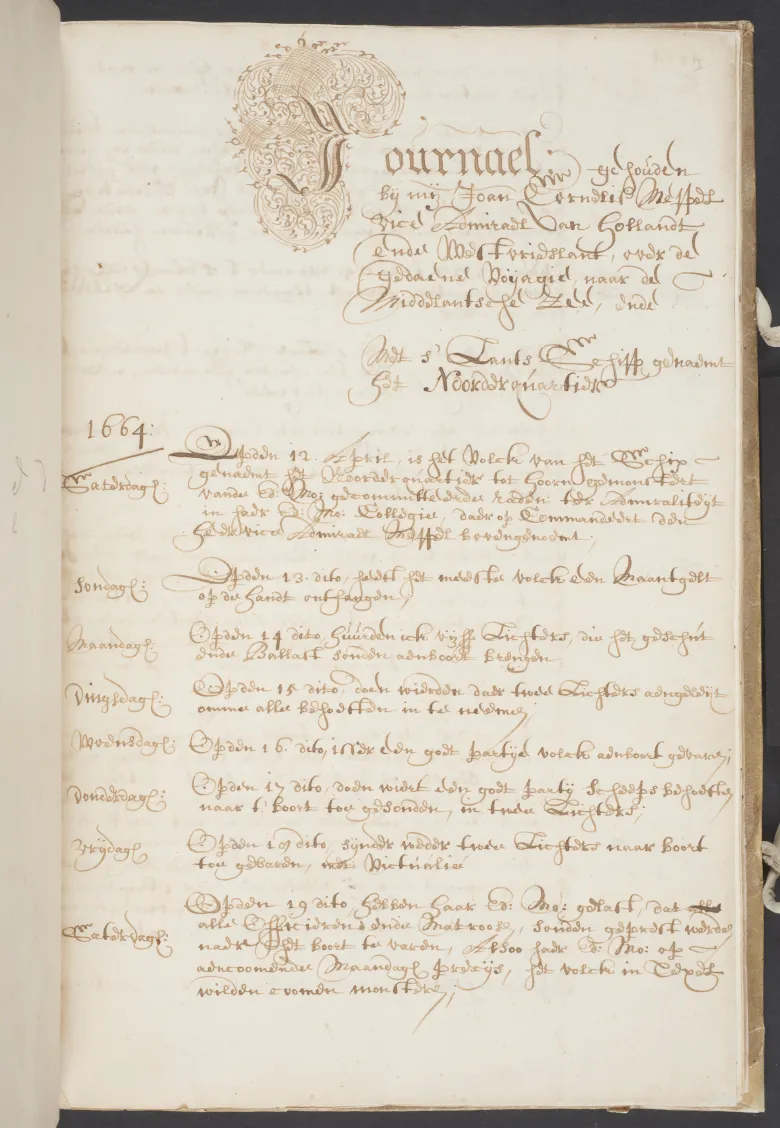 Journael: gehouden
bij mij Joan Cornelis Meppel
vice Admirael van Hollandt
ende Westvrieslant, over de
gedaene Voijagie, naar de
Middelantsche Zee, ende
Met s' Lants Schip genaemt
het Noorderquartier
1664:
Saterdagh: Opden 12. April, is het Volck van het Schip
genaemt het Noorderquartier tot Hoorn gemonstert
vande Ed: Mo: gecommitteerde raden ter Admiraliteijt
in haer Ed: Mo: Collegie, daer op Commandeert den
heer vice Admirael Meppel bovengenoemt;
Sondagh: Opden 13. dito, heeft het meeste volck een Maantgelt
op de handt ontfangen,
Maandagh: Opden 14 dito, huurden ick vijff Lichters, die het geschut
ende Ballast souden aenboort brengen
Dingsdagh: Opden 15 dito, doen wierden daer twee Lichters aengeleijt
omme alle behoeften in te neemen;
Woensdagh: Opden 16. dito, isser een goet partije volck aenboort gevaren;
Donderdagh: Opden 17 dito, doen wiert een goet party scheeps behoeften
naar t' boort toe gesonden, in twee Lichters;
Vrijdagh: Opden 18 dito, sijnder weeder twee Lichters naar boort
toe gevaren, Victualie
Saterdagh: Opden 19 dito, hebben haar Ed: Mo: gelast, dat
alle Officieren ende Matroosen, souden geprest werden
naer het boort te varen, Alsoo haer Ed: Mo: op
aencoomende Maandagh precijs, het volck in Texel
wilden coomen monsteren;